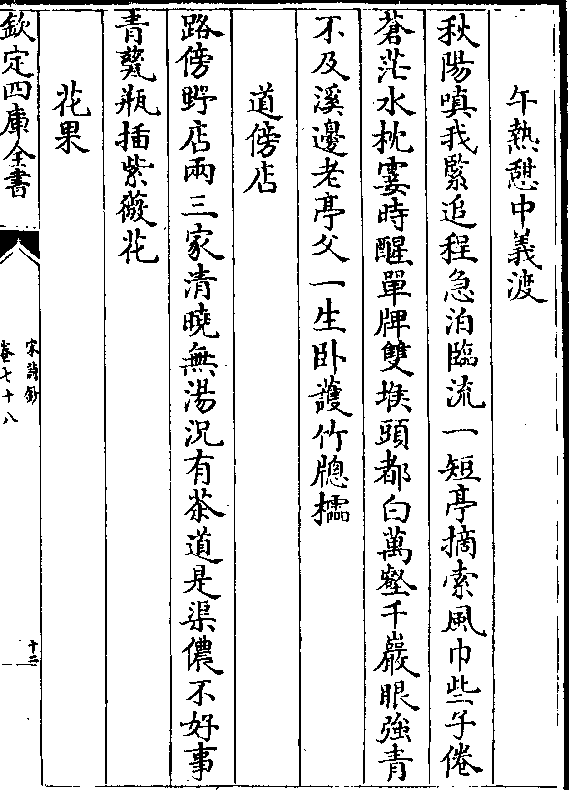 午熱憩中義渡
秋陽嗔我緊追程急泊臨流一短亭摘索風巾些子倦
蒼茫水枕霎時醒單牌雙堠頭都白萬壑千巖眼強青
不及溪邊老亭父一生卧護竹牕櫺
道傍店
路傍野店兩三家清曉無湯況有茶道是渠儂不好事
青甆瓶插紫薇花
花果
欽定四庫全書
宋詩鈔
卷七十八